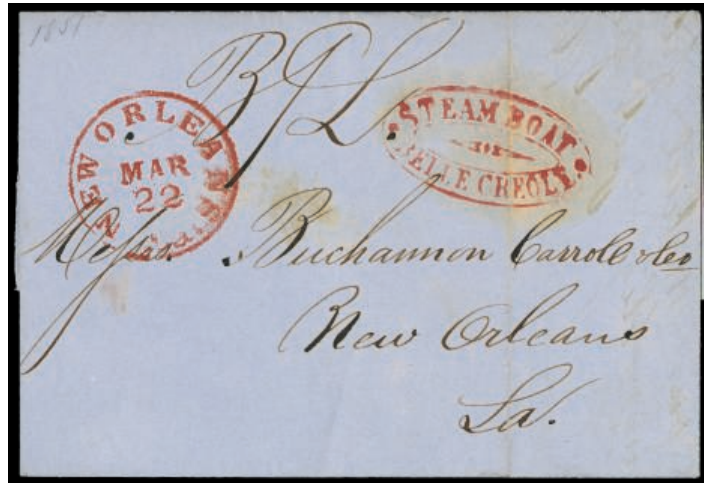 1851
B/L.
NEW ORLEANS La.
MAR
22
STEAM BOAT
BELLE CREOLE.
Messrs. Buchannon Carroll & Co
New Orleans
La.